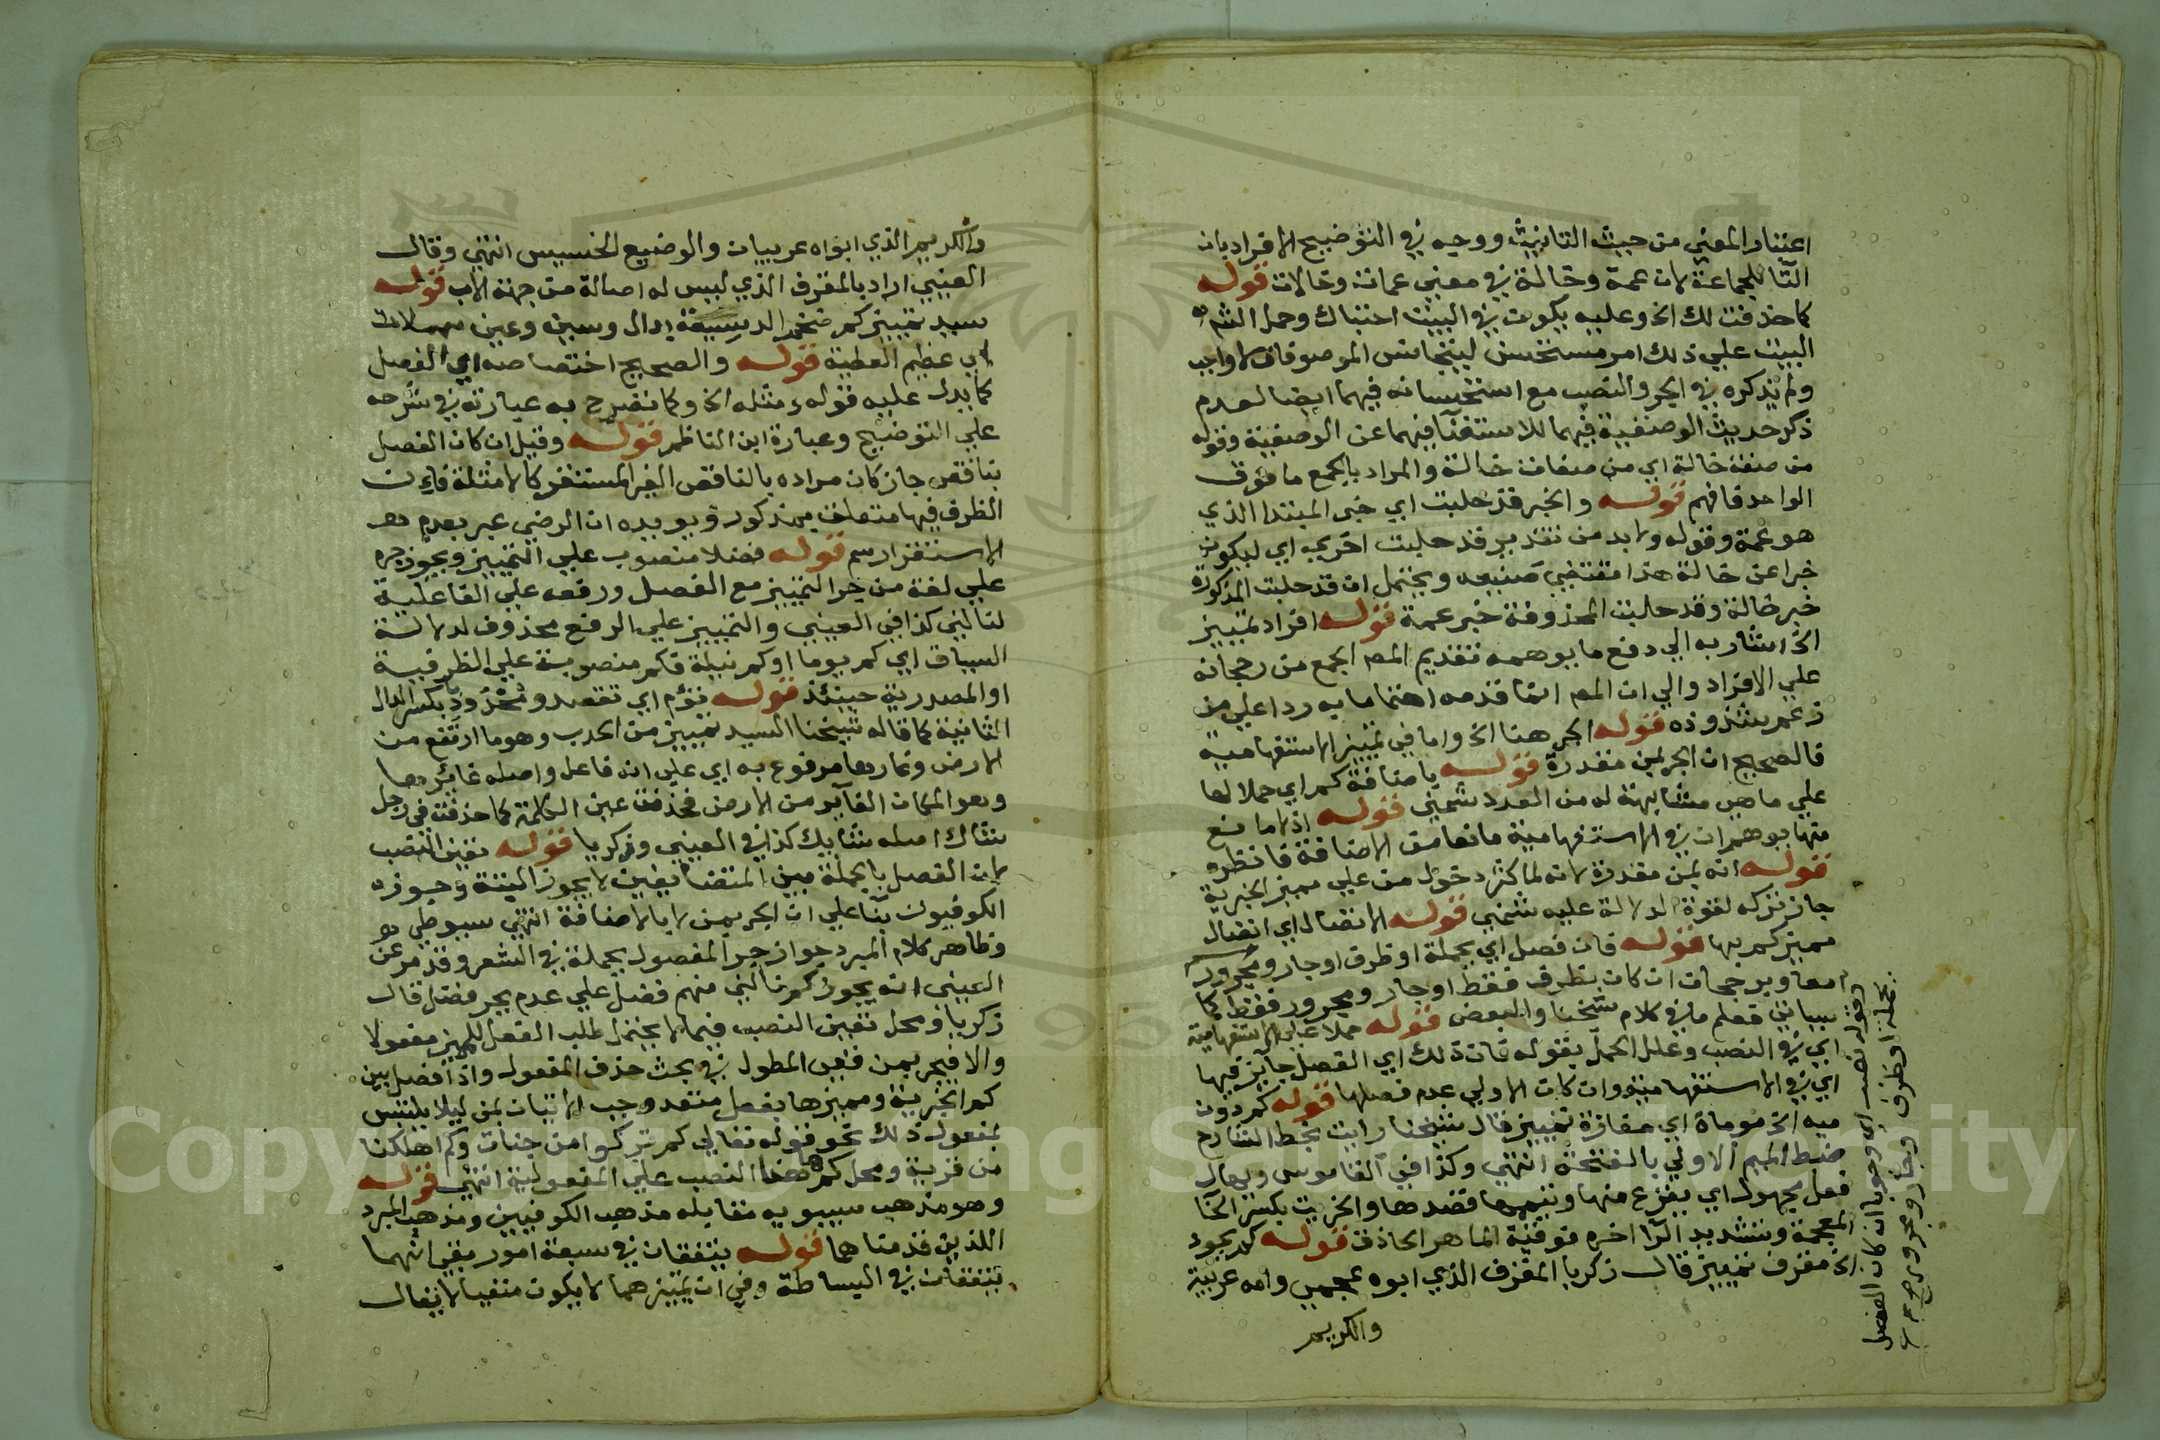 اعتبار المعني من حيث التانيث ووجيه في التوضيح الافراد بان
التا للجماعة لان عمة وخالة في معني عمات وخالات قوله
كما حذفت لك الخ وعليه يكون في البيت احتباك وحمل الشم
البيت علي ذلك امر مستحسن ليتجانس الموصوفان لا واجب
ولم يذكره في الجر والنصب مع استحسانه فيهما ايضا لعدم
ذكر حديث الوصفية فيهما للاستغنا فيهما عن الوصفية وقوله
من صفة خالة اي من صفات خالة والمراد بالجمع ما فوق
الواحد فافهم قوله والخبر قد حلبت اي خبر المبتدا الذي
هو عمة وقوله ولا بد من تقدير قد حلبت اخري اي ليكون
خبرا عن خالة هذا مقتضي صنيعه ويحتمل ان قد حلبت المذكورة
خبر خالة وقد حلبت المحذوفة خبر عمة قوله افراد تمييز
الخ اشار به الي دفع ما يوهمه تقديم المص الجمع من رجحانه
علي الافراد والي ان المص انما قدمه اهتماما به ردا علي من
زعم شذوذه قوله الجر هنا الخ واما في تمييز الاستفهامية
فالصحيح ان الجر بمن مقدرة قوله باضافة كم اي حملا لها
علي ما هي مشابهة له من العدد شمني قوله اذ لا مانع
منها يوهم ان في الاستفهامية مانعا من الاضافة فانظره
قوله انه بمن مقدرة لانه لما كثر دخول من علي مميز الخبرية
جاز تركه لقوة الدلالة عليه شمني قوله الاتصال اي اتصال
مميز كم بها قوله فان فصل اي بجملة او ظرف او جار ومجرور
معا وبرجحان ان كان بظرف فقط او جار ومجرور فقط كما
سياتي فعلم ما في كلام شيخنا والبعض قوله حملا علي الاستفهامية
اي في النصب وعلل الحمل بقوله فان ذلك اي الفصل جايز فيها
اي في الاستفهامية وان كان الاولي عدم فصلها قوله كم دون
ميه الخ موماة اي مفازة تمييز قال شيخنا رايت بخط الشارح
ضبط الميم الاولي بالفتحة انتهي وكذا في القاموس ويهال
فعل مجهول اي يفزع منها وتيممها قصدها والخريت بكسر الخا
المعجمة وتشديد الرا اخره فوقية الماهر الحاذق قوله كم بجود
الخ مقرف تمييز قال زكريا المقرف الذي ابوه عجمي وامه عربية
والكريم
وقوله نصب اي وجوبا ان كان الفصل
بجملة او ظرف وجار ومجرور
والكريم الذي ابواه عربيان والوضيع الخسيس انتهي وقال
العيني اراد بالمقرف الذي ليس له اصالة من جهة الاب قوله
سيد تمييز كم ضخم الدسيعة بدال وسين وعين مهملات
اي عظيم العطية قوله والصحيح اختصاصه اي الفصل
كما يدل عليه قوله ومثله الخ وكما تفصح به عبارته في شرحه
علي التوضيح وعبارة ابن الناظم قوله وقيل ان كان الفصل
بناقص جاز كان مراده بالناقص الغير المستقر كالامثلة فان
الظرف فيها متعلق بمذكور ويويده ان الرضي عبر بعدم
الاستقرار سم قوله فضلا منصوب علي التمييز ويجوز جره
علي لغة من جر التمييز مع الفصل ورفعه علي الفاعلية
لنالني كذا في العيني والتمييز علي الرفع محذوف لدلالة
السياق اي كم يوما او كم نيلة فكم منصوبة علي الظرفية
او المصدرية حينئذ قوله تؤم اي تقصد ومحدودب بكسر الدال
الثانية كما قاله شيخنا السيد تمييز من الحدب وهو ما ارتفع من
الارض وغارها مرفوع به اي علي انه فاعل واصله غائرها
وهو المكان الغآير من الارض فحذفت عين الكلمة كما حذفت في رجل
شاك اصله شايك كذا في العيني وزكريا قوله تعين النصب
لان الفصل بالجملة بين المتضايفين لا يجوز البتة وجوزه
الكوفيون بنآ علي ان الجر بمن لا بالاضافة انتهي سيوطي
وظاهر كلام المبرد جواز جر المفصول بجملة في الشعر وقد مر عن
العيني انه يجوز كم نالني منهم فضل علي عدم بجر فضل قال
زكريا ومحل تعين النصب فيما لا يحتمل طلب الفعل للمميز مفعولا
والا فيجر بمن ففي المطول في بحث حذف المفعول واذا فصل بين
كم الخبرية ومميزها بفعل متعد وجب الاتيان بمن ليلا يلتبس
بمفعول ذلك نحو قوله تعالي كم تركوا من جنات وكم اهلكنا
من قرية ومحل كم هنا النصب علي المفعولية انتهي قوله
وهو مذهب سيبويه مقابله مذهب الكوفيين ومذهب المبرد
اللذين قدمناهما قوله يتفقان في سبعة امور بقي انهما
يتفقان في البساطة وفي ان تمييزهما لا يكون منفيا لا يقال
Copy King Saud University